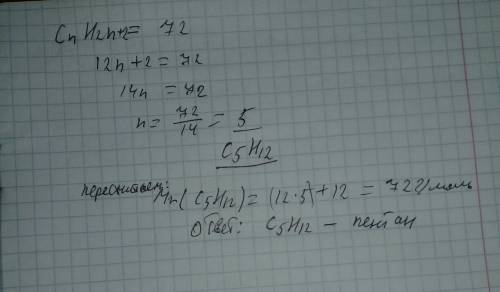 CnH2n+2 = 72
12n+2 = 72
14n = 72
n = 72/14 = 5
C5H12
Mr(C5H12) = (12·5)+12 = 72г/моль
Ответ: C5H12 - пентан